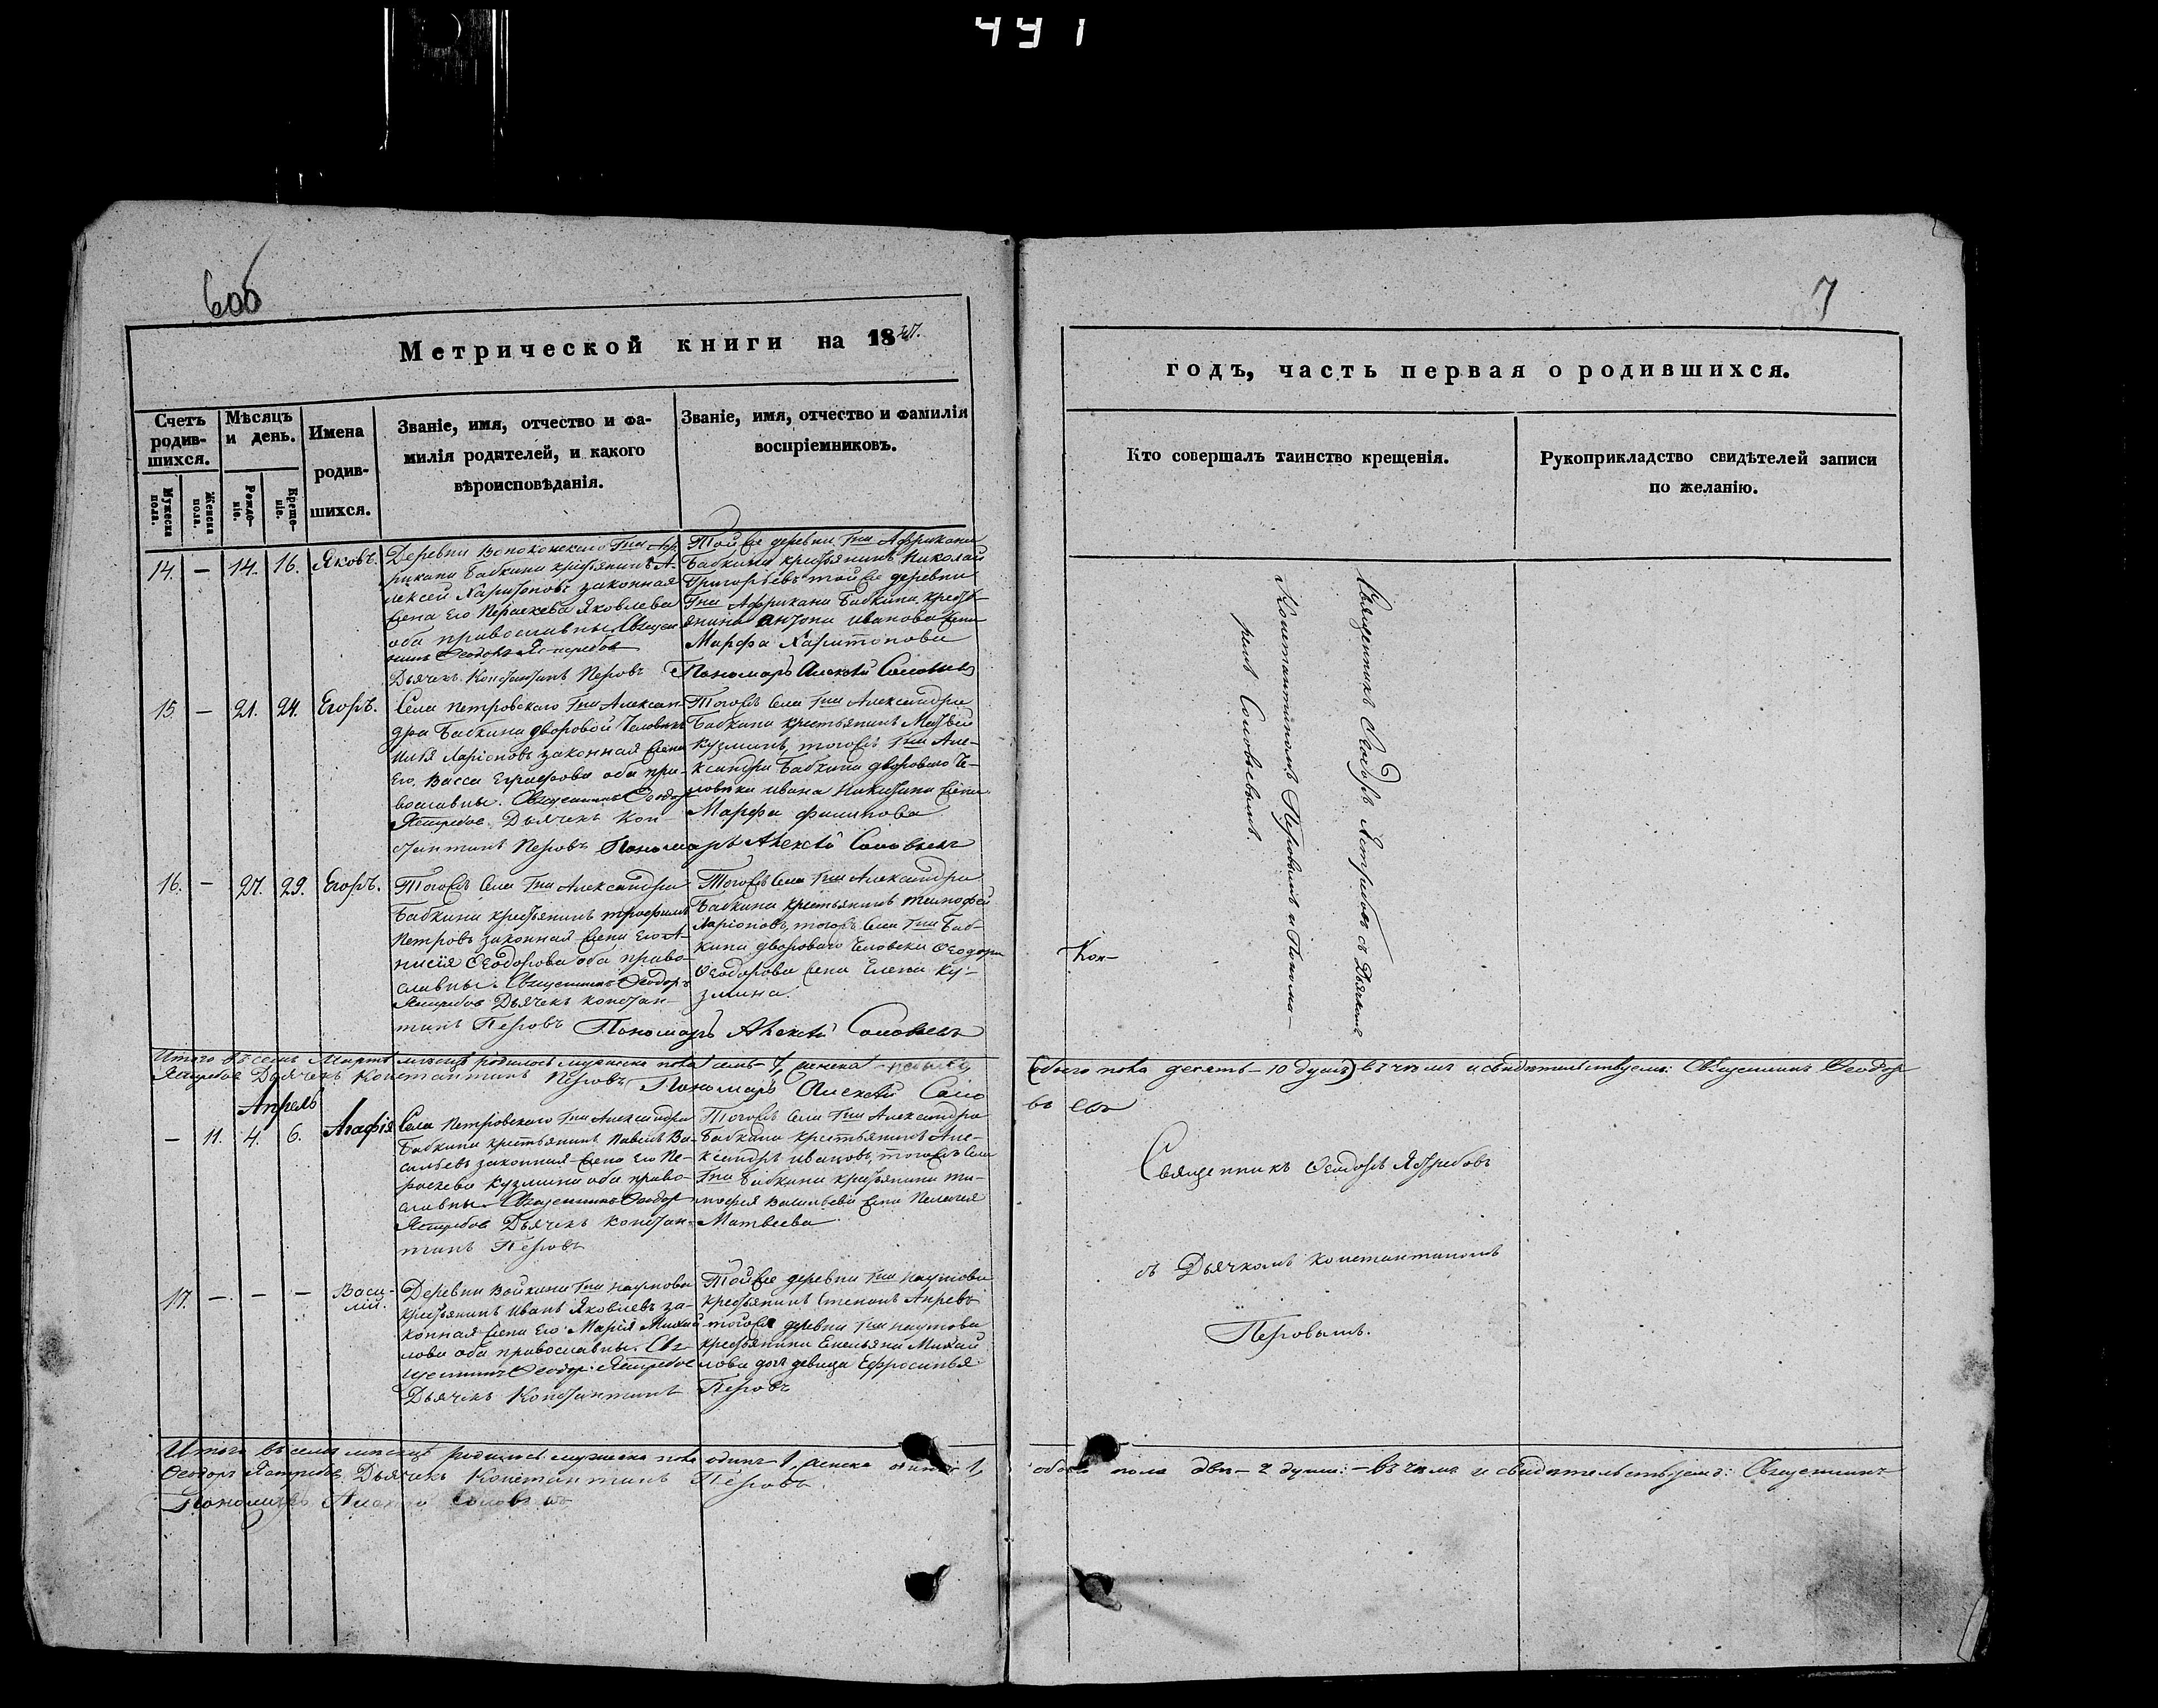 491
6об
7
Метрической книги на 1847.
годъ, часть первая о родившихся.
Счетъ родив-шихся.
Мѣсяцъ и день.
Имена родив-шихся.
Званіе, имя, отчество и фа-
милія родителей, и какого
вѣроисповѣданія.
Званіе, имя, отчество и фамилія
воспріемниковъ.
Кто совершалъ таинство крещенія.
Рукоприкладство свидѣтелей записи
по желанію.
Мужеска пола.
Женска пола.
Рожде-ніе.
Креще-ніе.
14. — 14. 16. Яковъ.
Деревни Гна Аф-
рикана Бабкина крестьянинъ А-
лексей Харитоновъ законная
жена Его Параскева Яковлева
оба православны. Священ
никъ Феодоръ Ястребов
Дьячекъ Константинъ Перовъ
Той же деревни Гна Африкана
Бабкина крестьянинъ Николай
Григорьевъ той же деревни
Гна Африкана Бабкина кресть-
янина Антона Иванова жена
Марфа Харитонова
Пономарь Алексѣй Соловьевъ
15. — 21. 24. Егоръ.
Села Петровскаго Гна Алексан-
дра Бабкина дворовой Человекъ
Илья Ларіоновъ законная жена
Его Васса оба пра-
вославны. Священникъ Феодор
Ястребов Дьячекъ Кон-
стантинъ Перовъ Пономарь Алексѣй Соловьевъ
Тогожъ Села Гна Александра
Бабкина крестьянинъ Матвей
Кузминъ, тогожъ Гна Але-
ксандра Бабкина двороваго Че-
ловека Ивана Никитина жена
Марфа Филипова
16. — 27. 29. Егоръ.
Тогожъ Села Гна Александра
Бабкина крестьянинъ Трофимъ
Петровъ законная жена Его А-
нисія Феодорова оба право-
славны. Священникъ Феодоръ
Ястребов Дьячекъ Констан-
тинъ Перовъ Пономарь Алексѣй Соловьевъ
Тогожъ Села Гна Александра
Бабкина крестьянинъ Тимофей
Ларіоновъ, тогожъ Села Гна Баб-
кина двороваго Человека Феодора
Феодорова жена Елена Ку-
змина.
Священникъ Феодоръ Ястребовъ съ Дьячкомъ
Константиномъ Перовымъ и Понома-
ремъ Соловьевымъ.
Кон-
Итого въ семъ Мартѣ месяцѣ родилось мужеска пола семь—7, женска
обоего пола десять—10 душъ) въ чемъ и свидѣтельствуемъ: Священникъ Феодор
Ястребов Дьячекъ Константинъ Перовъ, Пономарь Алексѣй Соло
въ евъ
Апрель
— 11. 4. 6. Агафія
Села Петровскаго Гна Александра
Бабкина крестьянинъ Павелъ Ва-
сильевъ законная жена Его Па-
раскева Кузмина оба право-
славны. Священникъ Феодор
Ястребов Дьячекъ Констан-
тинъ Перовъ
Тогожъ Села Гна Александра
Бабкина крестьянинъ Але-
ксандръ Ивановъ, тогожъ Села
Гна Бабкина крестьянина Ти-
мофея Васильева жена Пелагея
Матвеева
Священникъ Феодоръ Ястребовъ
съ Дьячкомъ Константиномъ
Перовымъ.
17. — — — Васи-лій.
Деревни Войкина Гна Наумова
крестьянинъ Иванъ Яковлевъ за-
конная жена Его Марія Михай
лова оба православны. Свя-
щенникъ Феодор Ястребов
Дьячекъ Константинъ Перовъ
Той же деревни Гна Наумова
крестьянинъ Степанъ
тогожа деревни Гна Наумова
крестьянина Емельяна Михай
лова дочь девица Ефросинья
Итого въ семъ месяце родилось мужеска пола одинъ—1, женска одинъ 1,
обоего пола две—2 души:—въ чемъ и свидетельствуемъ: Священникъ
Феодоръ Ястребов Дьячекъ Константинъ Перовъ.
Пономарь Алексѣй Соловьевъ